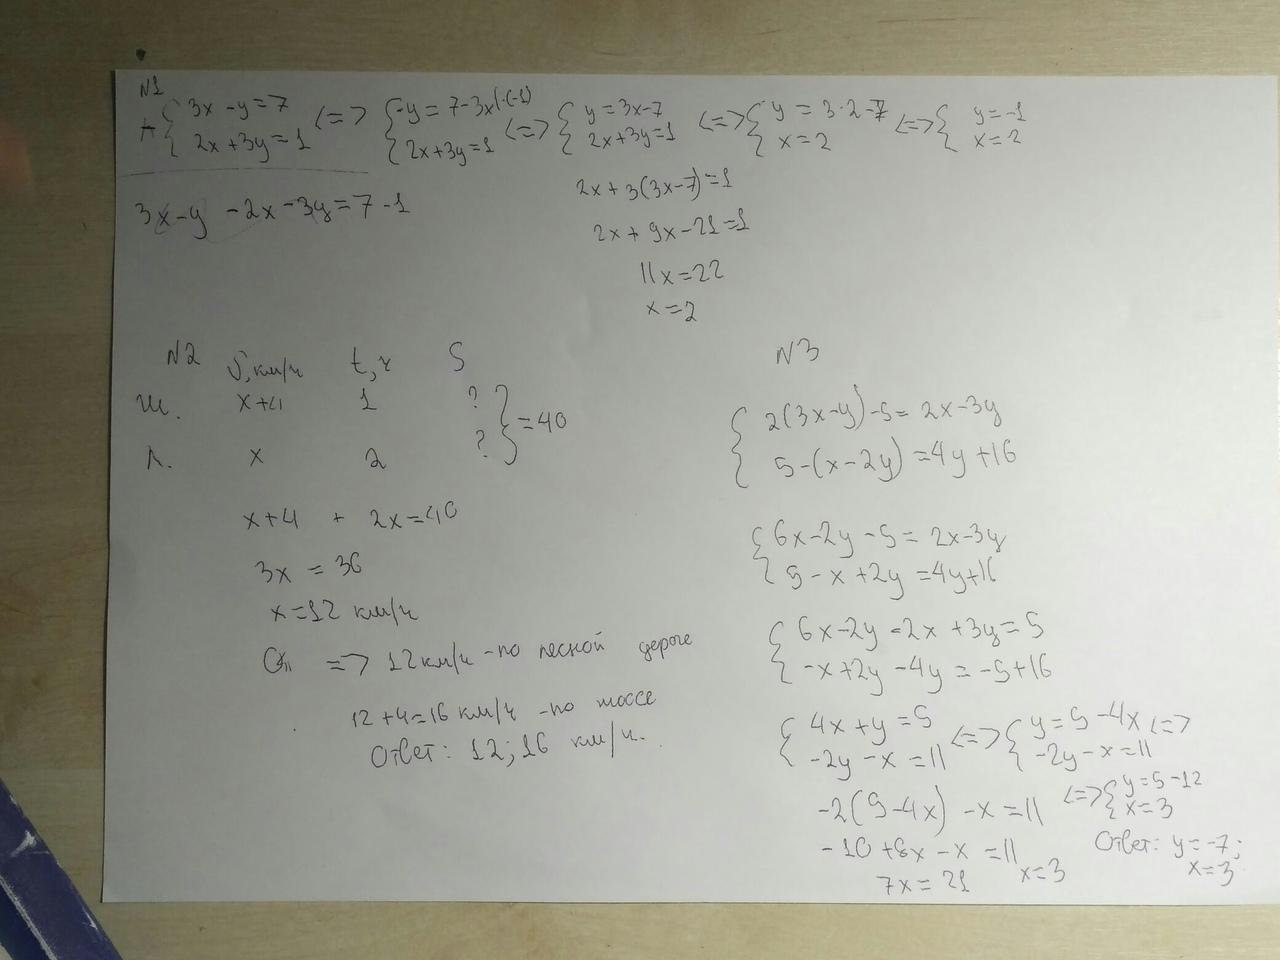 N1
{ 3x - y = 7 <=> { -y = 7 - 3x |·(-1) <=> { y = 3x - 7 <=> { y = 3·2 - 7 <=> { y = -1
2x + 3y = 1 2x + 3y = 1 2x + 3y = 1 x = 2 x = 2
3x - y - 2x - 3y = 7 - 1
2x + 3(3x - 7) = 1
2x + 9x - 21 = 1
11x = 22
x = 2
N2
V, км/ч t, ч S
Ш. x+4 1 ? } = 40
Л. x 2 ?
x+4 + 2x = 40
3x = 36
x = 12 км/ч
=> 12 км/ч - по лесной дороге
12 + 4 = 16 км/ч - по шоссе
Ответ: 12; 16 км/ч.
N3
{ 2(3x - y) - 5 = 2x - 3y
5 - (x - 2y) = 4y + 16
{ 6x - 2y - 5 = 2x - 3y
5 - x + 2y = 4y + 16
{ 6x - 2y - 2x + 3y = 5
-x + 2y - 4y = -5 + 16
{ 4x + y = 5 <=> { y = 5 - 4x <=>
-2y - x = 11 -2y - x = 11
<=> { y = 5 - 12
x = 3
-2(5 - 4x) - x = 11
-10 + 8x - x = 11
7x = 21 x = 3
Ответ: y = -7;
x = 3